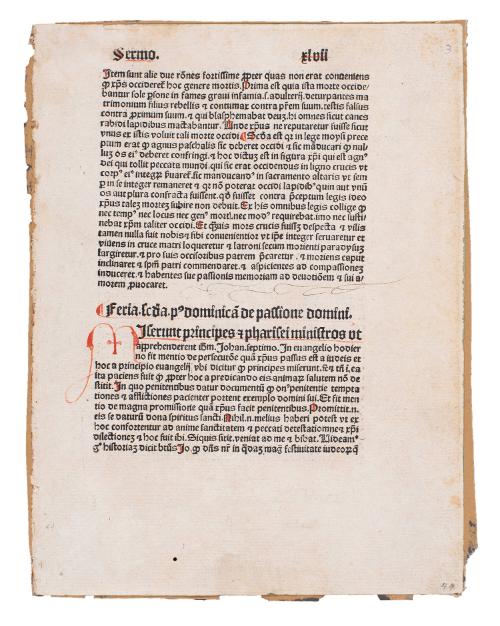 Sermo. xlvii
Item sunt alie due rōnes fortissime ꝓpter quas non erat conueniens
ꝙ xp̄s occideret̄ hoc genere mortis. Prima est quia ista morte occide-
bantur sole ꝑsone in fames graui infamia.s. adulterij. deturpantes ma
trimonium filius rebellis & contumax contra prēm suum. testis falsus
contra ꝓximum suum. & qui blasphemabat deuȝ. hi omnes sicut canes
rabidi lapidibus mactabantur. Unde xp̄us ne reputaretur fuisse sicut
vnus ex istis voluit tali morte occidi. Scd̄a est qꝛ in lege moysi prece
ptum erat ꝙ agnus paschalis sic deberet occidi & sic manducari ꝙ nul-
luȝ os ei⁹ deberet confringi. & hoc dictuȝ est in figura xp̄i qui est agn⁹
dei qui tollit peccata mundi. qui sic erat occidendus in ligno crucis vt
corp⁹ ei⁹ integrȝ
ꝑ in se integer remaneret & qꝛ nō poterat occidi lapidib⁹ quin aut vnū
os aut plura confracta fuissent. qd̓ fuisset contra p̄ceptum legis ideo
xp̄us taleȝ morteȝ subire non debuit. Ex his omnibus legis collige ꝙ
nec temp⁹ nec locus nec gen⁹ mortꝭ. nec mod⁹ requirebat. imo nec iusti-
nebat xp̄m taliter occidi. Et quis mors crucis fuisȝ despecta & vilis
tamen nulla fuit nobis & sibi conuenientior vt ip̄e integer seruaretur et
viuens in cruce matri loqueretur & latroni secum morienti paradysuȝ
largiretur. & pro suis occisoribus patrem p̄caretur. & moriens caput
inclinaret & spm̄ patri commendaret. & aspicientes ad compassioneȝ
induceret. & habentes sue passionis memoriam ad deuotiōem & sui a-
morem ꝓuocaret.
Feria.scd̄a.p⁹ dominicā de passione domini.
Miserunt principes & pharisei ministros vt
apprehenderent ihm̄. Johan. septimo. In euangelio hodier
no fit mentio de persecutōe quā xp̄us passus est a iudeis et
hoc a principio euangelij. vbi dicitur ꝙ principes miserunt. &
ita paciens fuit ꝙ ꝓpter hoc a predicando eis animarȝ salutem nō de
stitit. In quo penitentibus datur documentū ꝙ oēs penitentie tempta
tiones & afflictiones pacienter portent exemplo domini sui. Et fit men
tio de magna promissione quā xp̄us facit penitentibus. Promittit.n.
eis se daturū dona spiritus sancti. Nihil.n.melius haberi potest vt ex
hoc confortentur ad anime sanctitatem & peccati detestationem & xp̄i
dilectioneȝ & hoc fuit ibi. Siquis sitit. veniat ad me & bibat. Videam⁹
g̊ historiaȝ dicit btūs Jo. ꝙ dn̄s nr̄ in q̄daȝ mag festiuitate iudeorȝ q